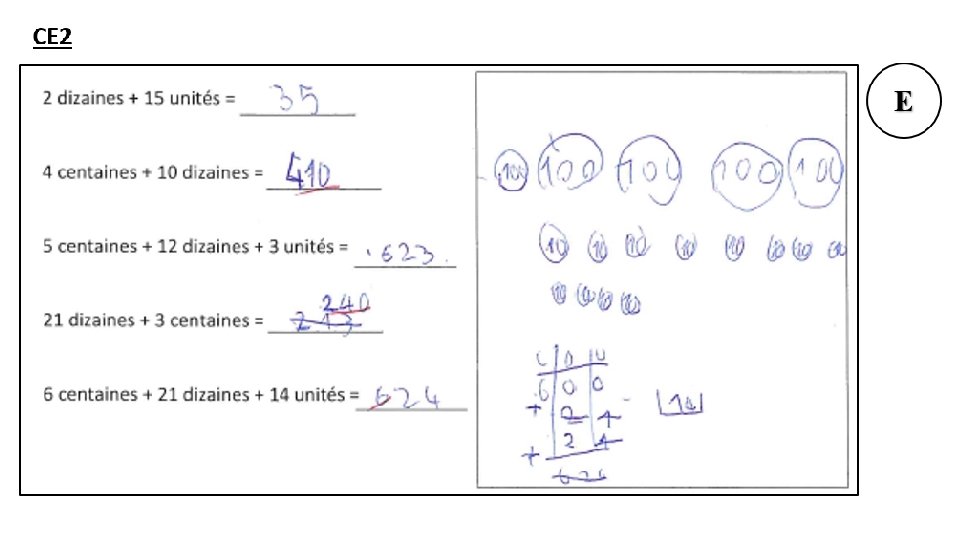 CE2
2 dizaines + 15 unités = 35
E
4 centaines + 10 dizaines = 410
100 100 100 100 100
5 centaines + 12 dizaines + 3 unités = 623
10 10 10 10 10 10 10 10
10 10 10 10
240
21 dizaines + 3 centaines = 213
C D U
6 0 0
6 centaines + 21 dizaines + 14 unités = 624
+ 2 1
14
+ 2 4
624